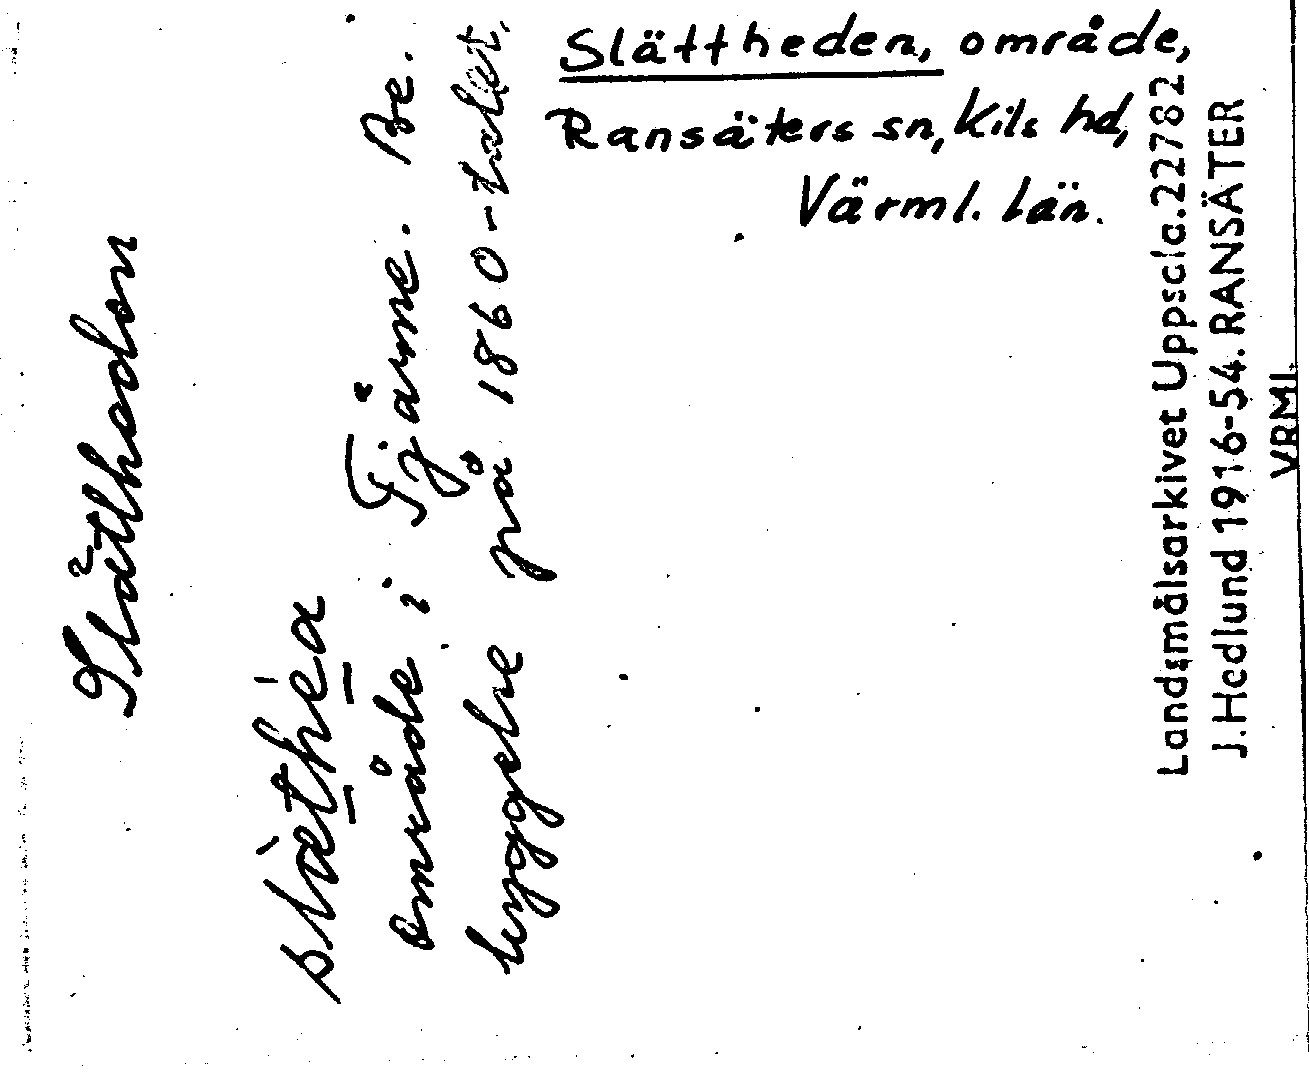 Slättheden, område,
Ransäters sn, Kils hd,
Värml. län.
Slätthedon
område i Tjärne. Be.
byggelse på 1860-talet.
Landsmålsarkivet Uppsala. 22782
J. Hedlund 1916-54. RANSÄTER
VRML.